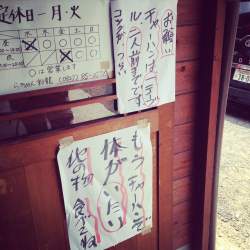 定休日-月・火
○は営業します
お願い
チャーハンは1テーブ
ル二人前までです
コシが、つらい
もうチャーハンで
体がいたい
他の物食べてね